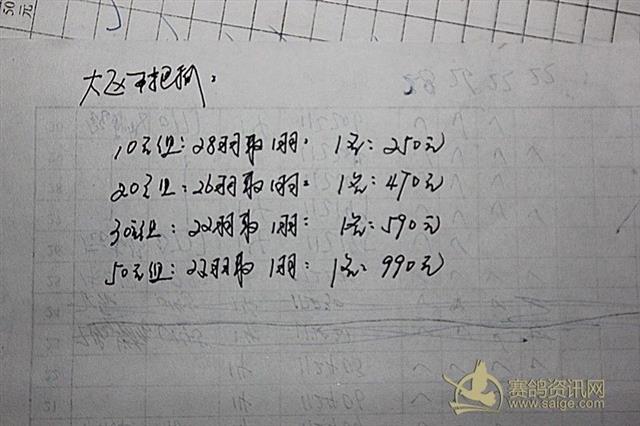 50元
大区不把抓:
10元组:28羽取1羽: 1名:250元
20元组:26羽取1羽: 1名:470元
30元组:22羽取1羽: 1名:590元
50元组:22羽取1羽: 1名:990元
赛鸽资讯网
www.saige.com